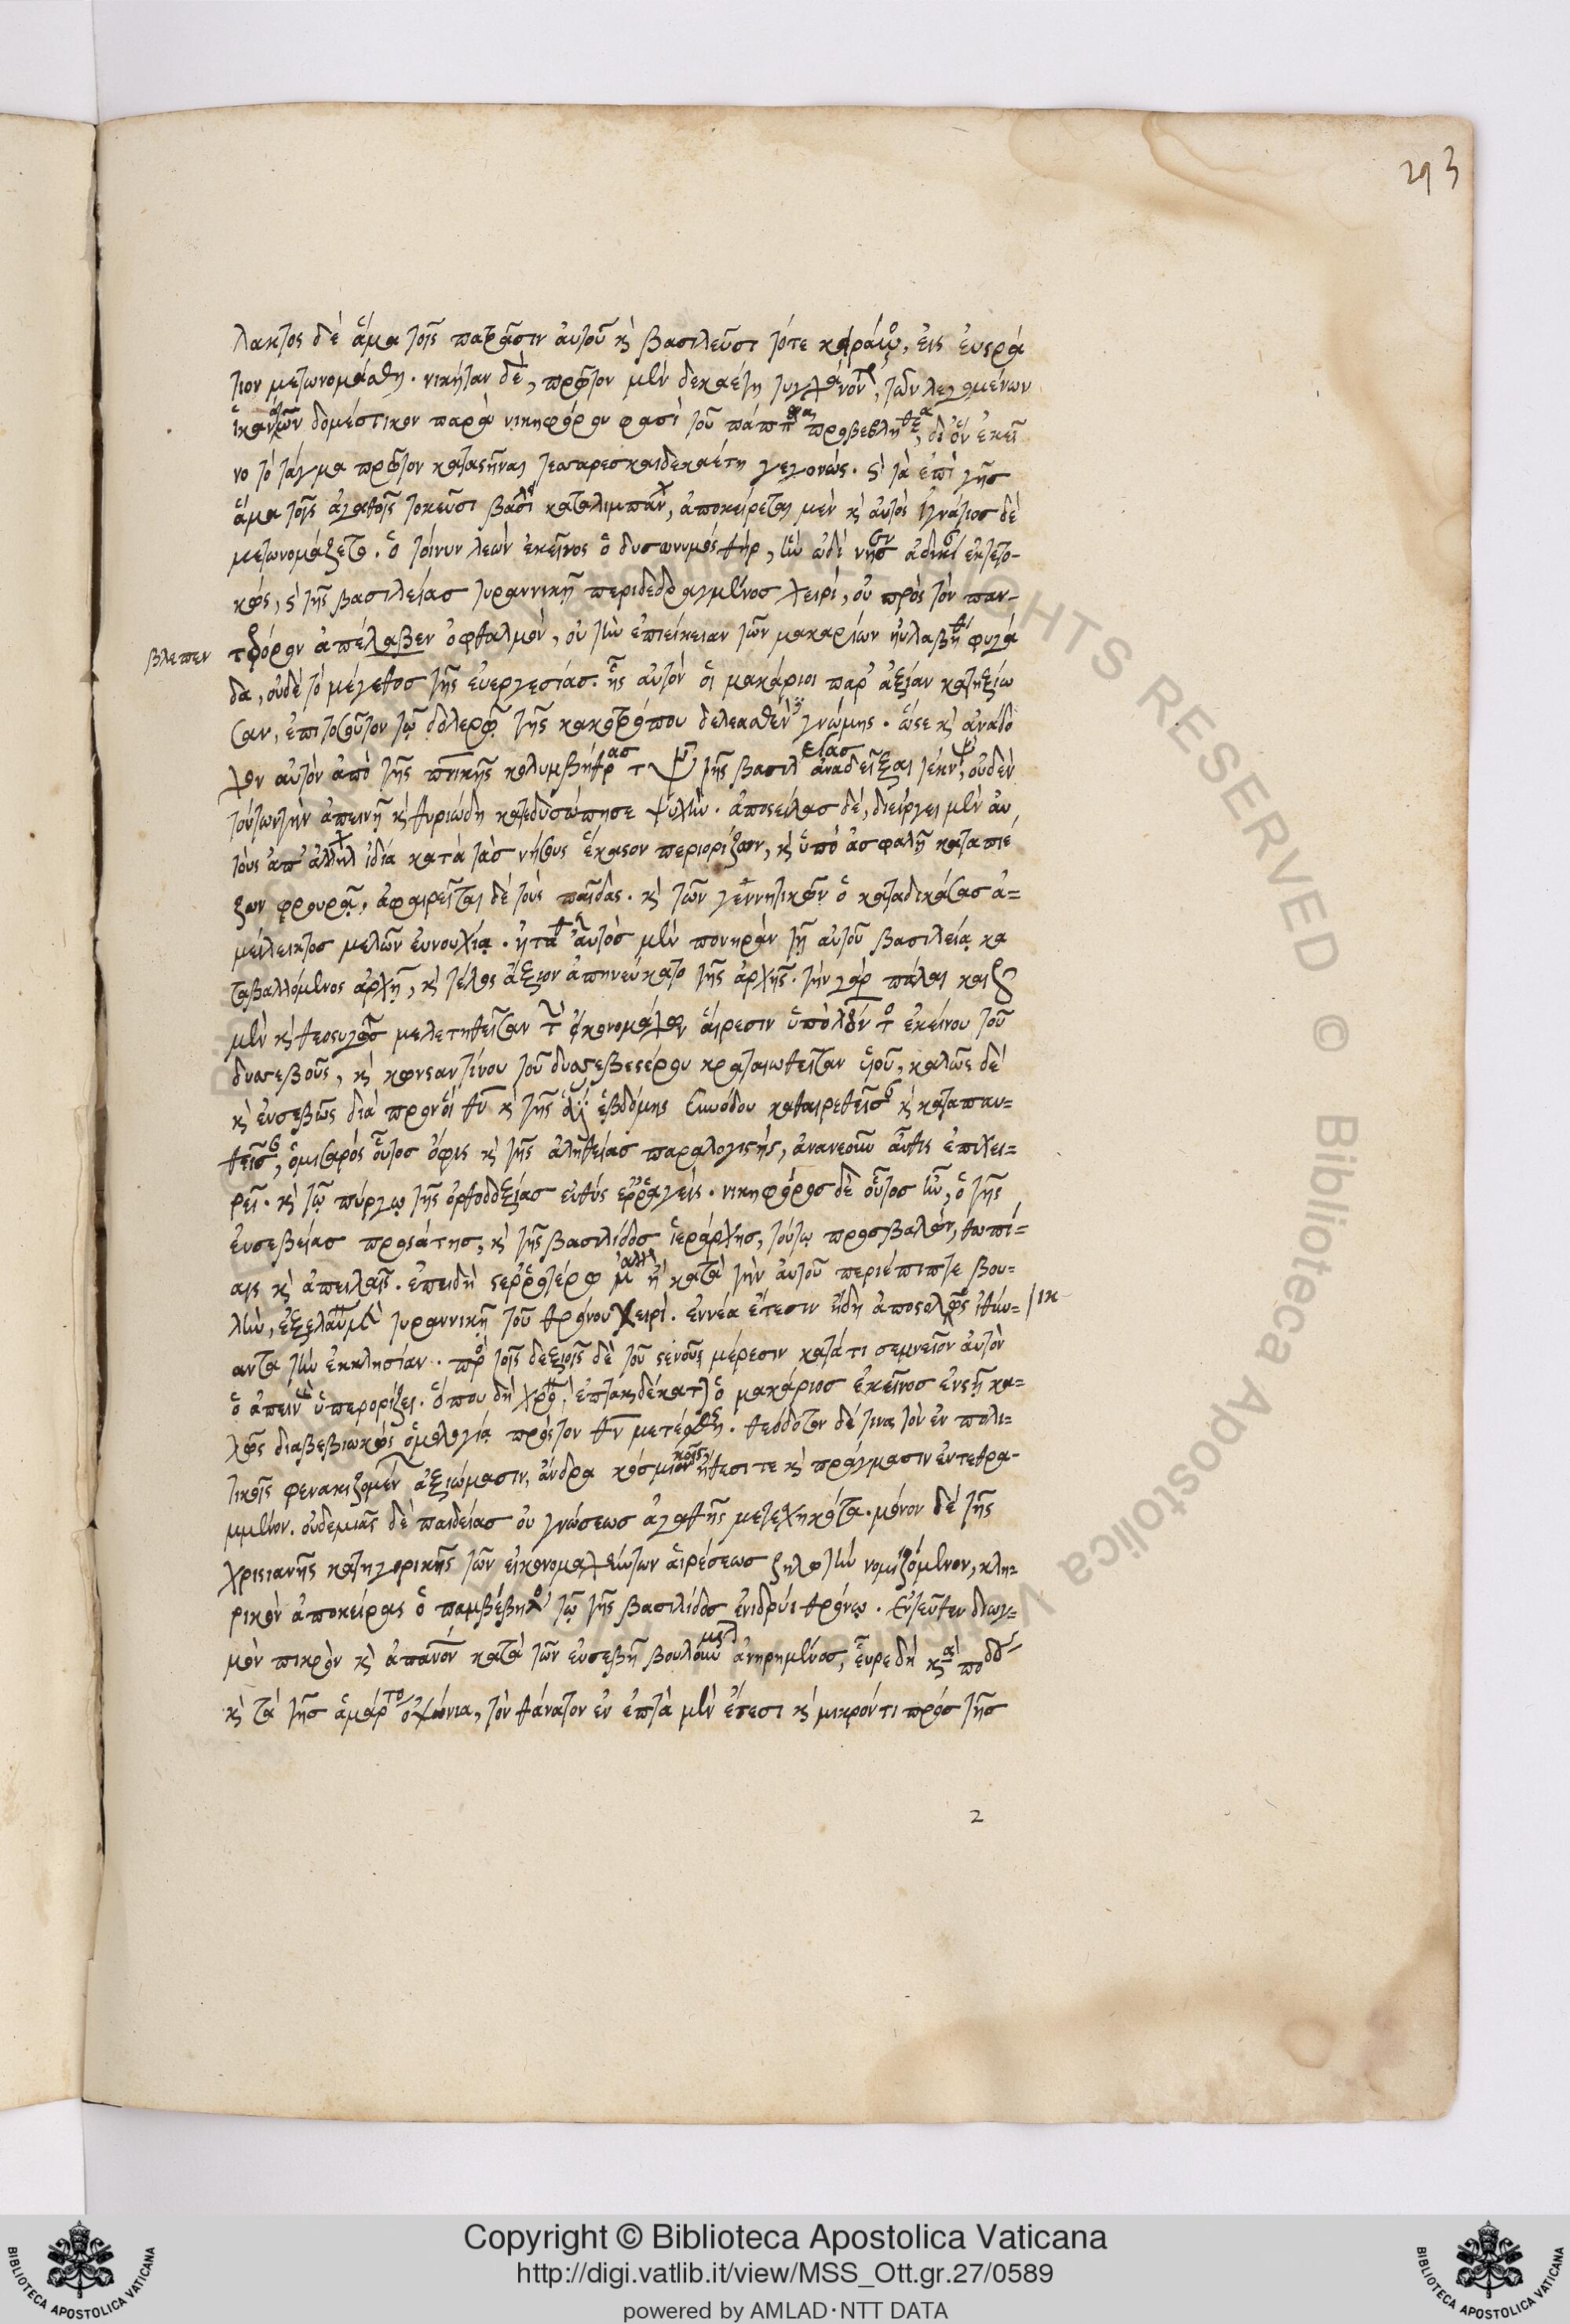 293
λακτος δὲ ἅμα τοῖς πατράσιν αὐτοῦ κὶ βασιλεῦσι τότε, εἰς εὐστρά
τιον μετωνομάσθη. νικήταν δὲ, πρῶτον μὲν δεκαέτη τυγχάνοντα, τῶν λεγομένων
ἱκανάτων δομέστικον παρὰ νικηφόρου φασὶ τοῦ πάππου προβεβλῆσθαι, δι' ὃν ἐκεῖ
νο τὸ τάγμα πρῶτον καταστῆναι τεσσαρεσκαιδεκαέτη γεγονὼς. τὰ ἐπὶ γῆς
ἅμα τοῖς ἀγαθοῖς τοκεῦσι καταλιμπάνων, ἀποκείρεται μὲν κὶ αὐτὸς ἰγνάτιος δὲ
μετωνομάζετο. ὁ τοίνυν λεὼν ἐκεῖνος ὁ δυσώνυμος θὴρ, ἣν ὠδίνησεν ἀδικίαν ἐκτετο-
κὼς, κὶ τῆς βασιλείας τυραννικῇ περιδεδραγμένος χειρὶ, οὐ πρὸς τὸν παν-
βλεπεν
τεφόρον ἀπέλαβεν ὀφθαλμὸν, οὐ τὴν ἐπιείκειαν τῶν μακαρίων ηὐλαβήθη φυγά
δα, οὐδὲ τὸ μέγεθος τῆς εὐεργεσίας. ἧς αὐτὸν οἱ μακάριοι παρ' ἀξίαν κατηξίω
σαν, ἐπὶ τοσοῦτον τῷ δολερῷ τῆς κακοτρόπου δελεασθέντες γνώμης. ὥστε κὶ ἀνάδο
χον αὐτὸν ἀπὸ τῆς πνικῆς κολυμβήθρας τῆς βασιλείας ἀναδεῖξαι τέκνων, οὐδὲν
τούτων τὴν ἀπεινῆ κὶ θηριώδη κατεδυσώπησε ψυχὴν. ἀποστείλας δὲ, διείργει μὲν αὐ
τοὺς ἀπ' ἀλλήλων ἰδίᾳ κατὰ τὰς νήσους ἕκαστον περιορίζων, κὶ ὑπὸ ἀσφαλῆ καταπιέ
ζων φρουρᾷ, ἀφαιρεῖται δὲ τοὺς παῖδας. κὶ τῶν γεννητικῶν ὁ καταδικάσας ἀ=
μείλεικτος μελῶν εὐνουχίᾳ. αὐτὸς μὲν πονηρὰν τῇ αὐτοῦ βασιλείᾳ κα
ταβαλλόμενος ἀρχῇ, κὶ τέλος ἄξιον ἀπηνεύκατο τῆς ἀρχῆς. τὴν γὰρ πάλαι κακῶς
μὲν κὶ θεοστυγῶς μελετηθεῖσαν τῶν εἰκονομάχων αἵρεσιν ὑπὸ λέοντος ἐκείνου τοῦ
δυσσεβοῦς, κὶ κωνσταντίνου τοῦ δυσσεβεστέρου κραταιωθεῖσαν υἱοῦ, καλῶς δὲ
κὶ εὐσεβῶς διὰ προνοίας θυ κὶ τῆς ἁγίας ἑβδόμης συνόδου καθαιρεθεῖσαν κὶ καταπαυ=
θεῖσαν, ὁ μιαρὸς οὗτος ὄφις κὶ τῆς ἀληθείας παραλογιστὴς, ἀνανεοῦν αὖθις ἐπιχει=
ρεῖ. κὶ τῷ πύργῳ τῆς ὀρθοδοξίας εὐθὺς ἐρραγεὶς. νικηφόρος δὲ οὗτος ἦν, ὁ τῆς
εὐσεβείας προστάτης, κὶ τῆς βασιλίδος ἱεράρχης, τούτῳ προσβαλὼν, θωπεί=
αις κὶ ἀπειλαῖς. ἐπειδὴ στερροτέρῳ μᾶλλον ἢ κατὰ τὴν αὐτοῦ περιέπιπτε βου=
λὴν, ἐξελαύνει τυραννικῇ τοῦ θρόνου χειρὶ. ἐννέα ἔτεσιν ἤδη ἀποστολῶς ἰθύν= / ικ
αντα τὴν ἐκκλησίαν. πρὸς τοῖς δεξιοῖς δὲ τοῦ στενοῦ μέρεσιν κατά τι σεμνεῖον αὐτὸν
ὁ ἀπεινὴς ὑπερορίζει. ὅπου δὴ χρόνοις ἑπτακαίδεκα ὁ μακάριος ἐκεῖνος ἐν στῇ κα=
λῶς διαβεβιωκὼς ὁμολογίᾳ πρὸς τὸν θν μετέστη. θεόδοτον δέ τινα τὸν ἐν πολι=
τικοῖς φενακιζόμενον ἀξιώμασιν, ἄνδρα κοσμικοῖς ἤθεσί τε κὶ πράγμασιν ἐντεθρα-
μμένον. οὐδεμιᾶς δὲ παιδείας οὐ γνώσεως ἀγαθῆς μετεσχηκότα. μόνον δὲ τῆς
χριστιανῆς κατηγορικῆς τῶν εἰκονομαχούντων αἱρέσεως ζηλωτὴν νομιζόμενον, κλη=
ρικὸν ἀποκείρας ὁ παμβέβηλος τῷ τῆς βασιλίδος ἐνιδρύει θρόνῳ. Ἐντεῦθεν διωγ=
μὸν πικρὸν κὶ ἀπάνθρωπον κατὰ τῶν εὐσεβεῖν βουλομένων ἀνῃρημένος, εὗρε δὴ κὶ
κὶ τὰ τῆς ἁμαρτίας ὀψώνια, τὸν θάνατον ἐν ἑπτὰ μὲν ἔτεσι κὶ μικρόν τι πρὸς τῆς
2
Copyright © Biblioteca Apostolica Vaticana
http://digi.vatlib.it/view/MSS_Ott.gr.27/0589
powered by AMLAD·NTT DATA
BIBLIOTECA APOSTOLICA VATICANA
BIBLIOTECA APOSTOLICA VATICANA